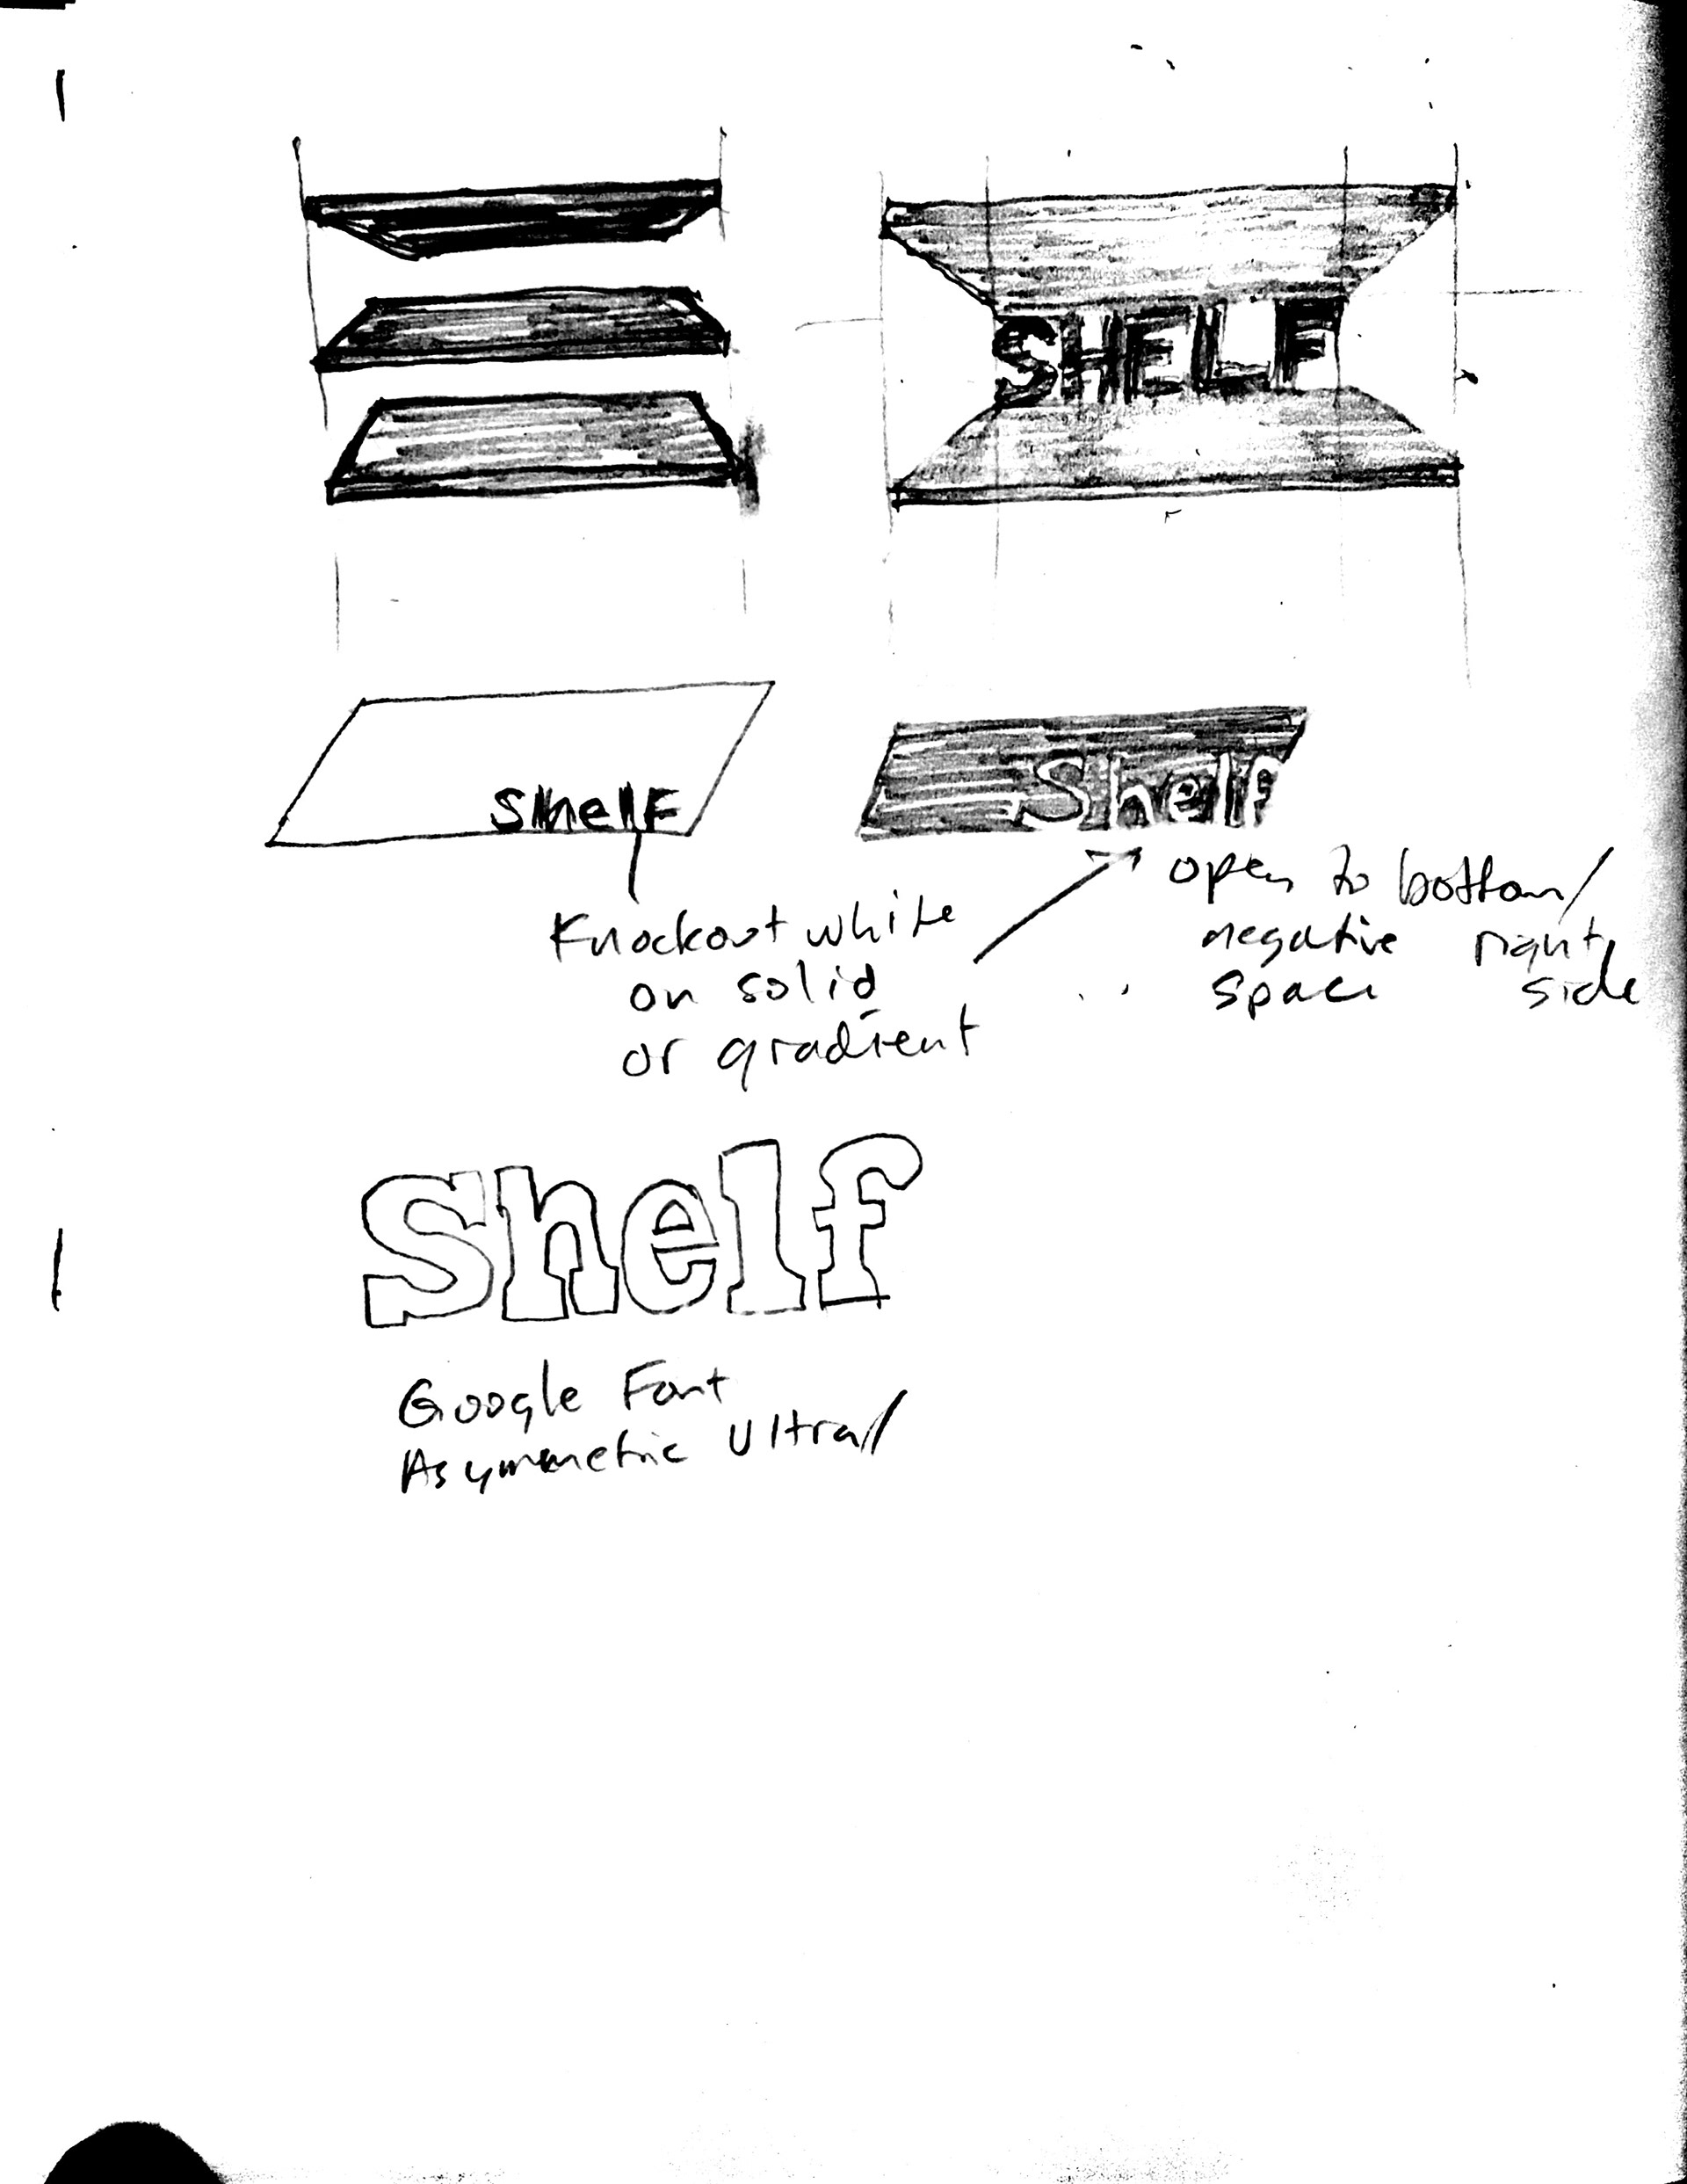 SHELF
Shelf
Shelf
Knockout white
on solid
or gradient
open to bottom/
negative right
space side
Shelf
Google Font
Asymmetric Ultra//